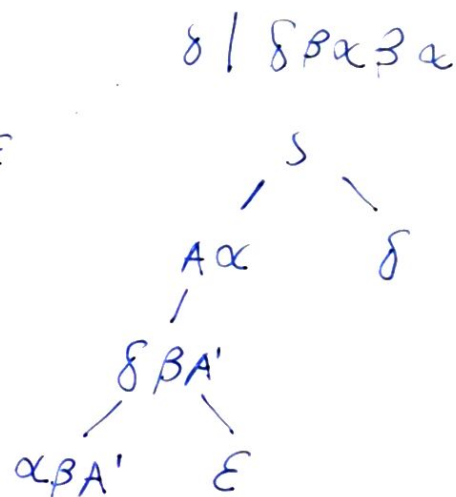 δ | δβαβα
ε
S
Aα δ
δβA'
αβA' ε